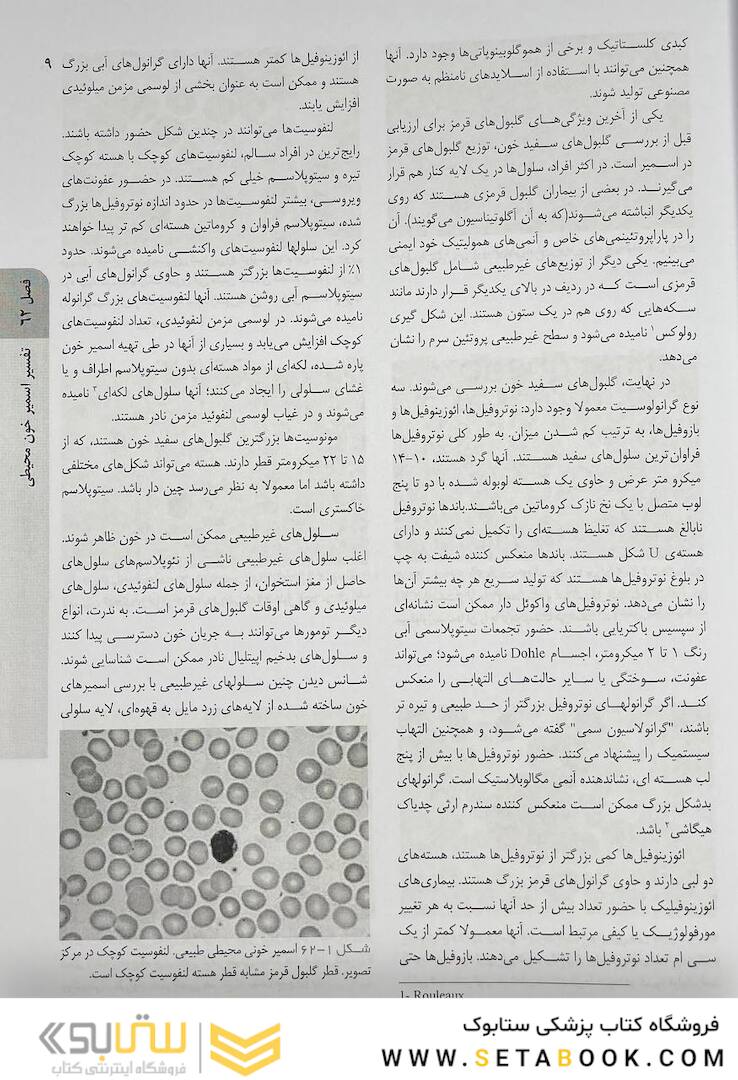 ۹
فصل ۶۲
تفسیر اسمیر خون محیطی
کبدی کلستاتیک و برخی از هموگلوبینوپاتی‌ها وجود دارد. آنها
همچنین می‌توانند با استفاده از اسلایدهای نامنظم به صورت
مصنوعی تولید شوند.
یکی از آخرین ویژگی‌های گلبول‌های قرمز برای ارزیابی
قبل از بررسی گلبول‌های سفید خون، توزیع گلبول‌های قرمز
در اسمیر است. در اکثر افراد، سلول‌ها در یک لایه کنار هم قرار
می‌گیرند. در بعضی از بیماران گلبول قرمزی هستند که روی
یکدیگر انباشته می‌شوند(که به آن آگلوتیناسیون می‌گویند). آن
را در پاراپروتئینمی‌های خاص و آنمی‌های همولیتیک خود ایمنی
می‌بینیم. یکی دیگر از توزیع‌های غیرطبیعی شامل گلبول‌های
قرمزی است که در ردیف در بالای یکدیگر قرار دارند مانند
سکه‌هایی که روی هم در یک ستون هستند. این شکل گیری
رولوکس۱ نامیده می‌شود و سطح غیرطبیعی پروتئین سرم را نشان
می‌دهد.
در نهایت، گلبول‌های سفید خون بررسی می‌شوند. سه
نوع گرانولوسیت معمولا وجود دارد: نوتروفیل‌ها، ائوزینوفیل‌ها و
بازوفیل‌ها، به ترتیب کم شدن میزان. به طور کلی نوتروفیل‌ها
فراوان‌ترین سلول‌های سفید هستند. آنها گرد هستند، ۱۰-۱۴
میکرو متر عرض و حاوی یک هسته لوبوله شده با دو تا پنج
لوب متصل با یک نخ نازک کروماتین می‌باشند.باندها نوتروفیل
نابالغ هستند که تغلیظ هسته‌ای را تکمیل نمی‌کنند و دارای
هسته‌ی U شکل هستند. باندها منعکس کننده شیفت به چپ
در بلوغ نوتروفیل‌ها هستند که تولید سریع هر چه بیشتر آن‌ها
را نشان می‌دهد. نوتروفیل‌های واکوئل دار ممکن است نشانه‌ای
از سپسیس باکتریایی باشند. حضور تجمعات سیتوپلاسمی آبی
رنگ ۱ تا ۲ میکرومتر، اجسام Dohle نامیده می‌شود؛ می‌تواند
عفونت، سوختگی یا سایر حالت‌های التهابی را منعکس
کند. اگر گرانولهای نوتروفیل بزرگتر از حد طبیعی و تیره تر
باشند، "گرانولاسیون سمی" گفته می‌شود، و همچنین التهاب
سیستمیک را پیشنهاد می‌کنند. حضور نوتروفیل‌ها با بیش از پنج
لب هسته ای، نشاندهنده آنمی مگالوبلاستیک است. گرانولهای
بدشکل بزرگ ممکن است منعکس کننده سندرم ارثی چدیاک
هیگاشی۲ باشد.
ائوزینوفیل‌ها کمی بزرگتر از نوتروفیل‌ها هستند، هسته‌های
دو لبی دارند و حاوی گرانول‌های قرمز بزرگ هستند. بیماری‌های
ائوزینوفیلیک با حضور تعداد بیش از حد آنها نسبت به هر تغییر
مورفولوژیک یا کیفی مرتبط است. آنها معمولا کمتر از یک
سی ام تعداد نوتروفیل‌ها را تشکیل می‌دهند. بازوفیل‌ها حتی
1- Rouleaux
از ائوزینوفیل‌ها کمتر هستند. آنها دارای گرانول‌های آبی بزرگ
هستند و ممکن است به عنوان بخشی از لوسمی مزمن میلوئیدی
افزایش یابند.
لنفوسیت‌ها می‌توانند در چندین شکل حضور داشته باشند.
رایج‌ترین در افراد سالم، لنفوسیت‌های کوچک با هسته کوچک
تیره و سیتوپلاسم خیلی کم هستند. در حضور عفونت‌های
ویروسی، بیشتر لنفوسیت‌ها در حدود اندازه نوتروفیل‌ها بزرگ
شده، سیتوپلاسم فراوان و کروماتین هسته‌ای کم تر پیدا خواهند
کرد. این سلولها لنفوسیت‌های واکنشی نامیده می‌شوند. حدود
۱٪ از لنفوسیت‌ها بزرگتر هستند و حاوی گرانول‌های آبی در
سیتوپلاسم آبی روشن هستند. آنها لنفوسیت‌های بزرگ گرانوله
نامیده می‌شوند. در لوسمی مزمن لنفوئیدی، تعداد لنفوسیت‌های
کوچک افزایش می‌یابد و بسیاری از آنها در طی تهیه اسمیر خون
پاره شده، لکه‌ای از مواد هسته‌ای بدون سیتوپلاسم اطراف و یا
غشای سلولی را ایجاد می‌کنند؛ آنها سلول‌های لکه‌ای۳ نامیده
می‌شوند و در غیاب لوسمی لنفوئید مزمن نادر هستند.
مونوسیت‌ها بزرگترین گلبول‌های سفید خون هستند، که از
۱۵ تا ۲۲ میکرومتر قطر دارند. هسته می‌تواند شکل‌های مختلفی
داشته باشد اما معمولا به نظر می‌رسد چین دار باشد. سیتوپلاسم
خاکستری است.
سلول‌های غیرطبیعی ممکن است در خون ظاهر شوند.
اغلب سلول‌های غیرطبیعی ناشی از نئوپلاسم‌های سلول‌های
حاصل از مغز استخوان، از جمله سلول‌های لنفوئیدی، سلول‌های
میلوئیدی و گاهی اوقات گلبول‌های قرمز است. به ندرت، انواع
دیگر تومورها می‌توانند به جریان خون دسترسی پیدا کنند
و سلول‌های بدخیم اپیتلیال نادر ممکن است شناسایی شوند.
شانس دیدن چنین سلولهای غیرطبیعی با بررسی اسمیرهای
خون ساخته شده از لایه‌های زرد مایل به قهوه‌ای، لایه سلولی
شکل ۱-۶۲ اسمیر خونی محیطی طبیعی. لنفوسیت کوچک در مرکز
تصویر. قطر گلبول قرمز مشابه قطر هسته لنفوسیت کوچک است.
فروشگاه کتاب پزشکی ستابوک
WWW.SETABOOK.COM
ستابوک
فروشگاه اینترنتی کتاب